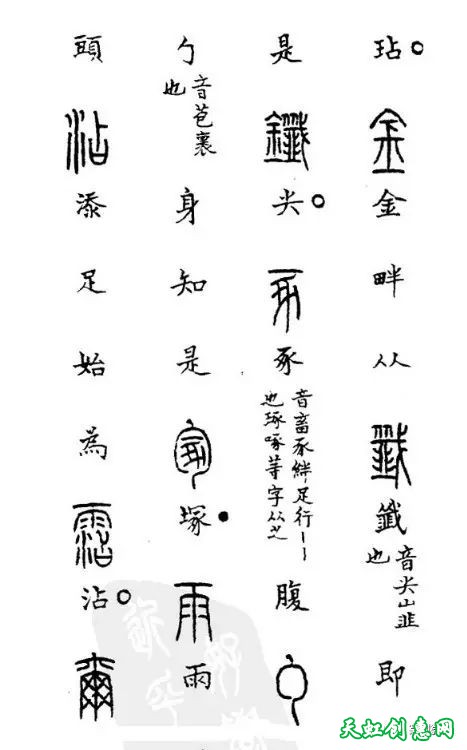 玷。金金畔从韱韱音尖山韭也即
是鑯尖。豖豕音畜豕絆足行丨丨也琢啄等字从之腹勹
勹音苞裹也身知是冢塚。雨雨
頭沾添足始為霑沾。爾
天虹创意网